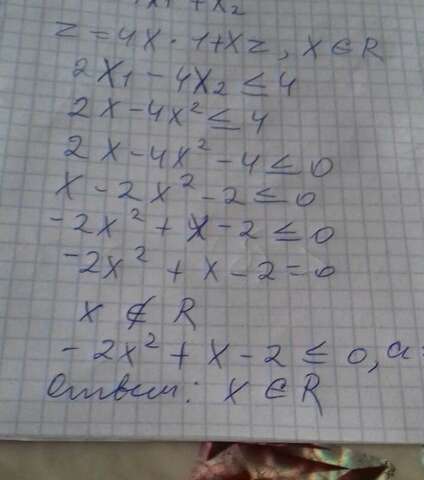 x₁ + x₂
z = 4x · 1 + xz, x ∈ R
2x₁ - 4x₂ ≤ 4
2x - 4x² ≤ 4
2x - 4x² - 4 ≤ 0
x - 2x² - 2 ≤ 0
-2x² + x - 2 ≤ 0
-2x² + x - 2 = 0
x ∉ R
-2x² + x - 2 ≤ 0, a
Ответ: x ∈ R